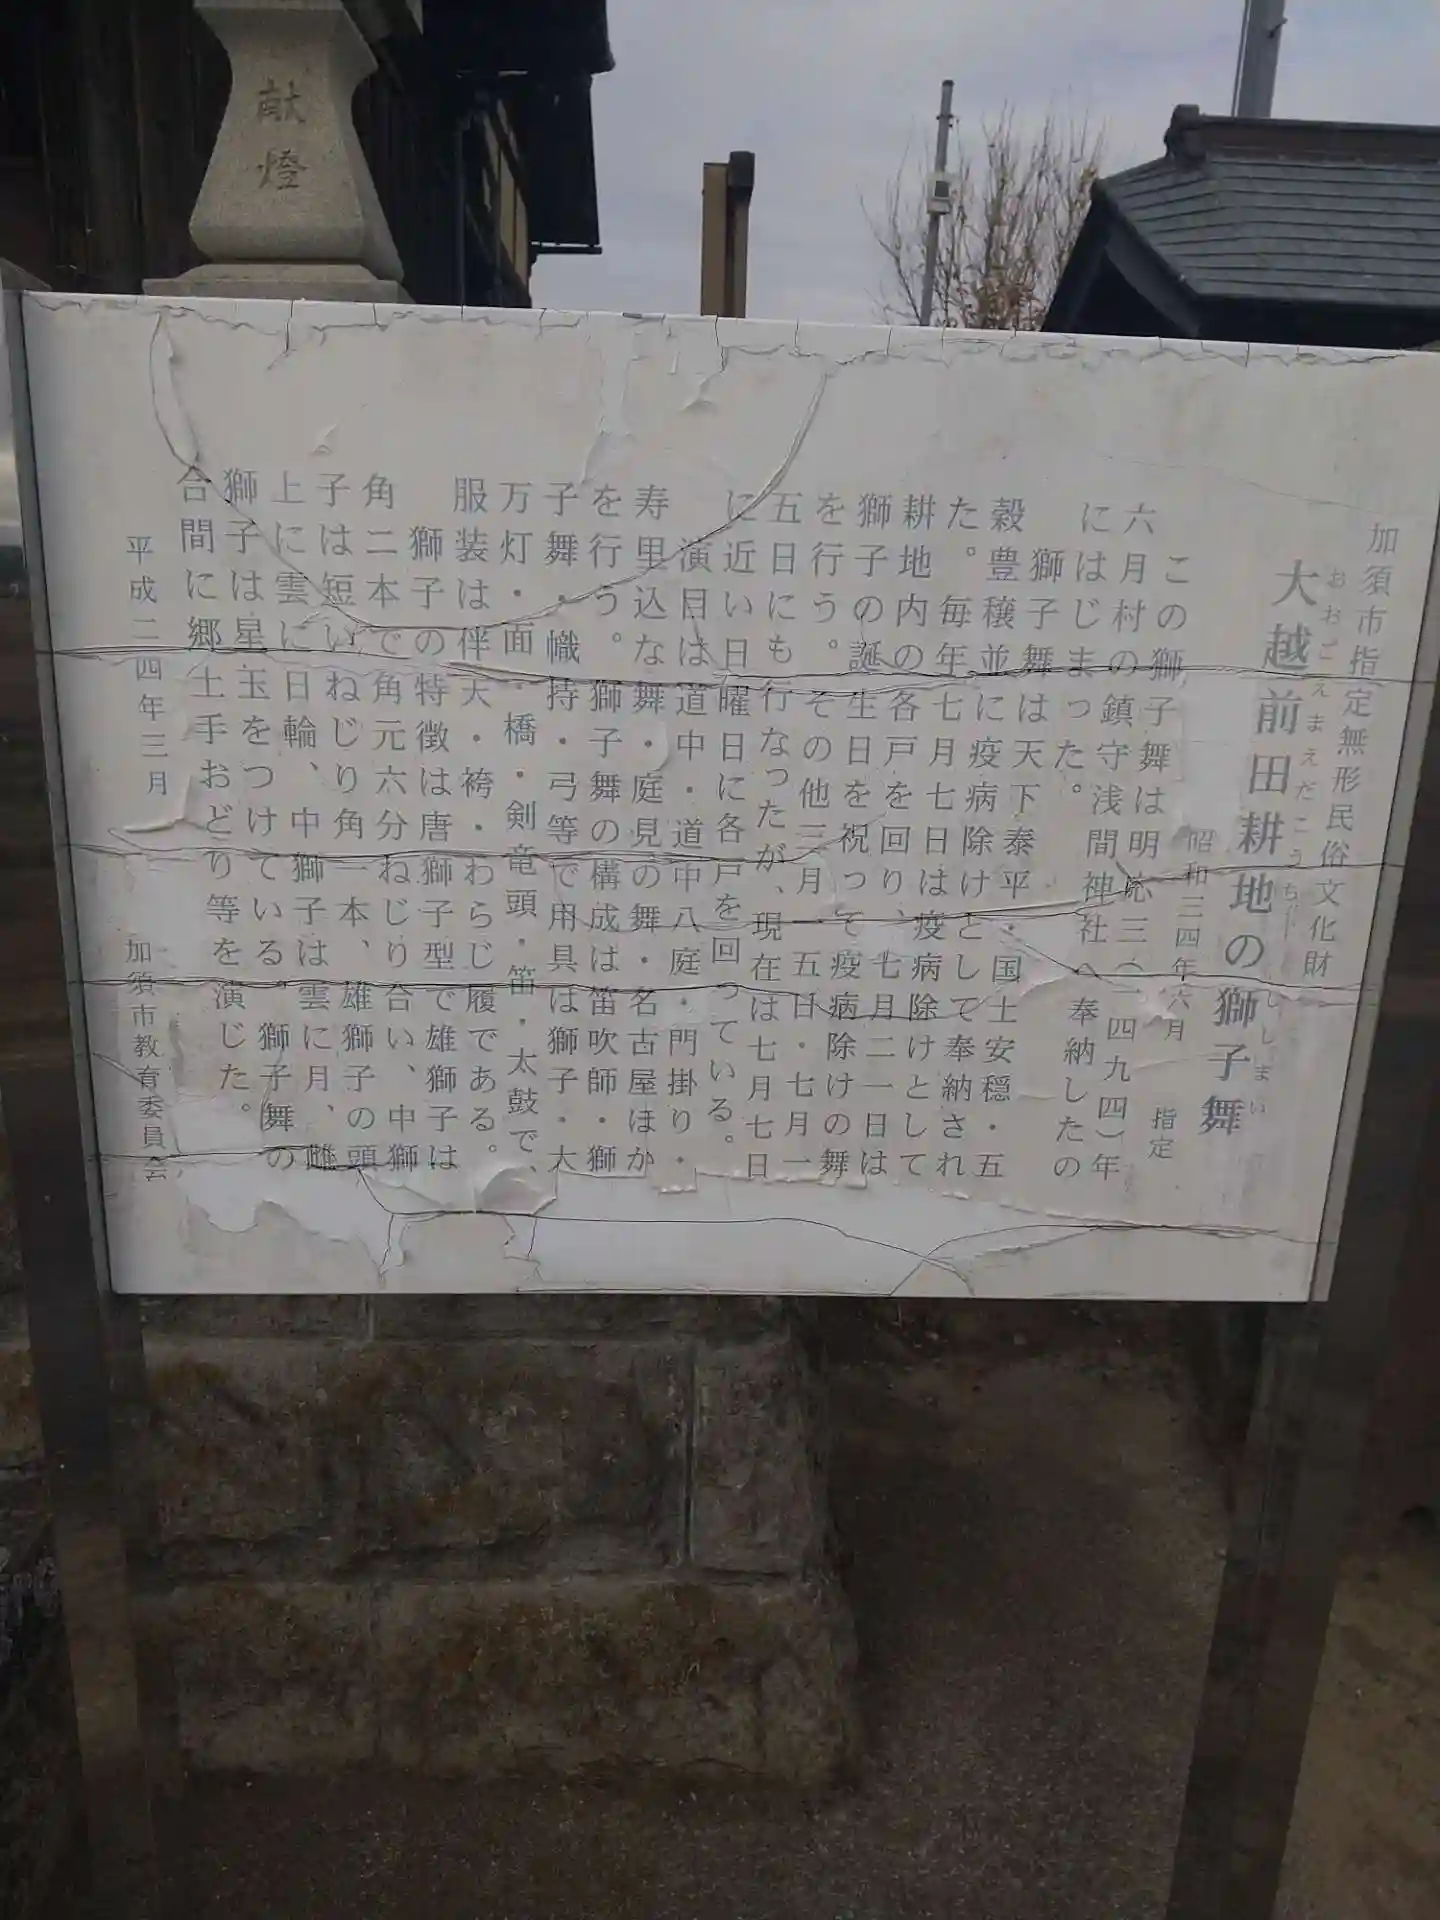 献燈
加須市指定無形民俗文化財
おおごえまえだこうちししまい
大越前田耕地の獅子舞
昭和三四年六月 指定
この獅子舞は明応三(一四九四)年
六月村の鎮守浅間神社へ奉納したの
にはじまった。
獅子舞は天下泰平・国土安穏・五
穀豊穣並に疫病除けとして奉納され
た。毎年七月七日は疫病除けとして
耕地内の各戸を回り、七月二一日は
獅子の誕生日を祝って疫病除けの舞
を行う。その他三月一五日・七月一
五日にも行なったが、現在は七月七日
に近い日曜日に各戸を回っている。
演目は道中・道中八庭・門掛り・
寿里込な舞・庭見の舞・名古屋ほか
を行う。獅子舞の構成は笛吹師・獅
子舞・幟持・弓等で用具は獅子・大
万灯・面・橋・剣竜頭・笛・太鼓で、
服装は伴天・袴・わらじ履である。
獅子の特徴は唐獅子型で雄獅子は
角二本で角元六分ねじり合い、中獅
子は短いねじり角一本、雄獅子の頭
上に雲に日輪、中獅子は雲に月、雌
獅子は星玉をつけている。獅子舞の
合間に郷土手おどり等を演じた。
平成二四年三月
加須市教育委員会